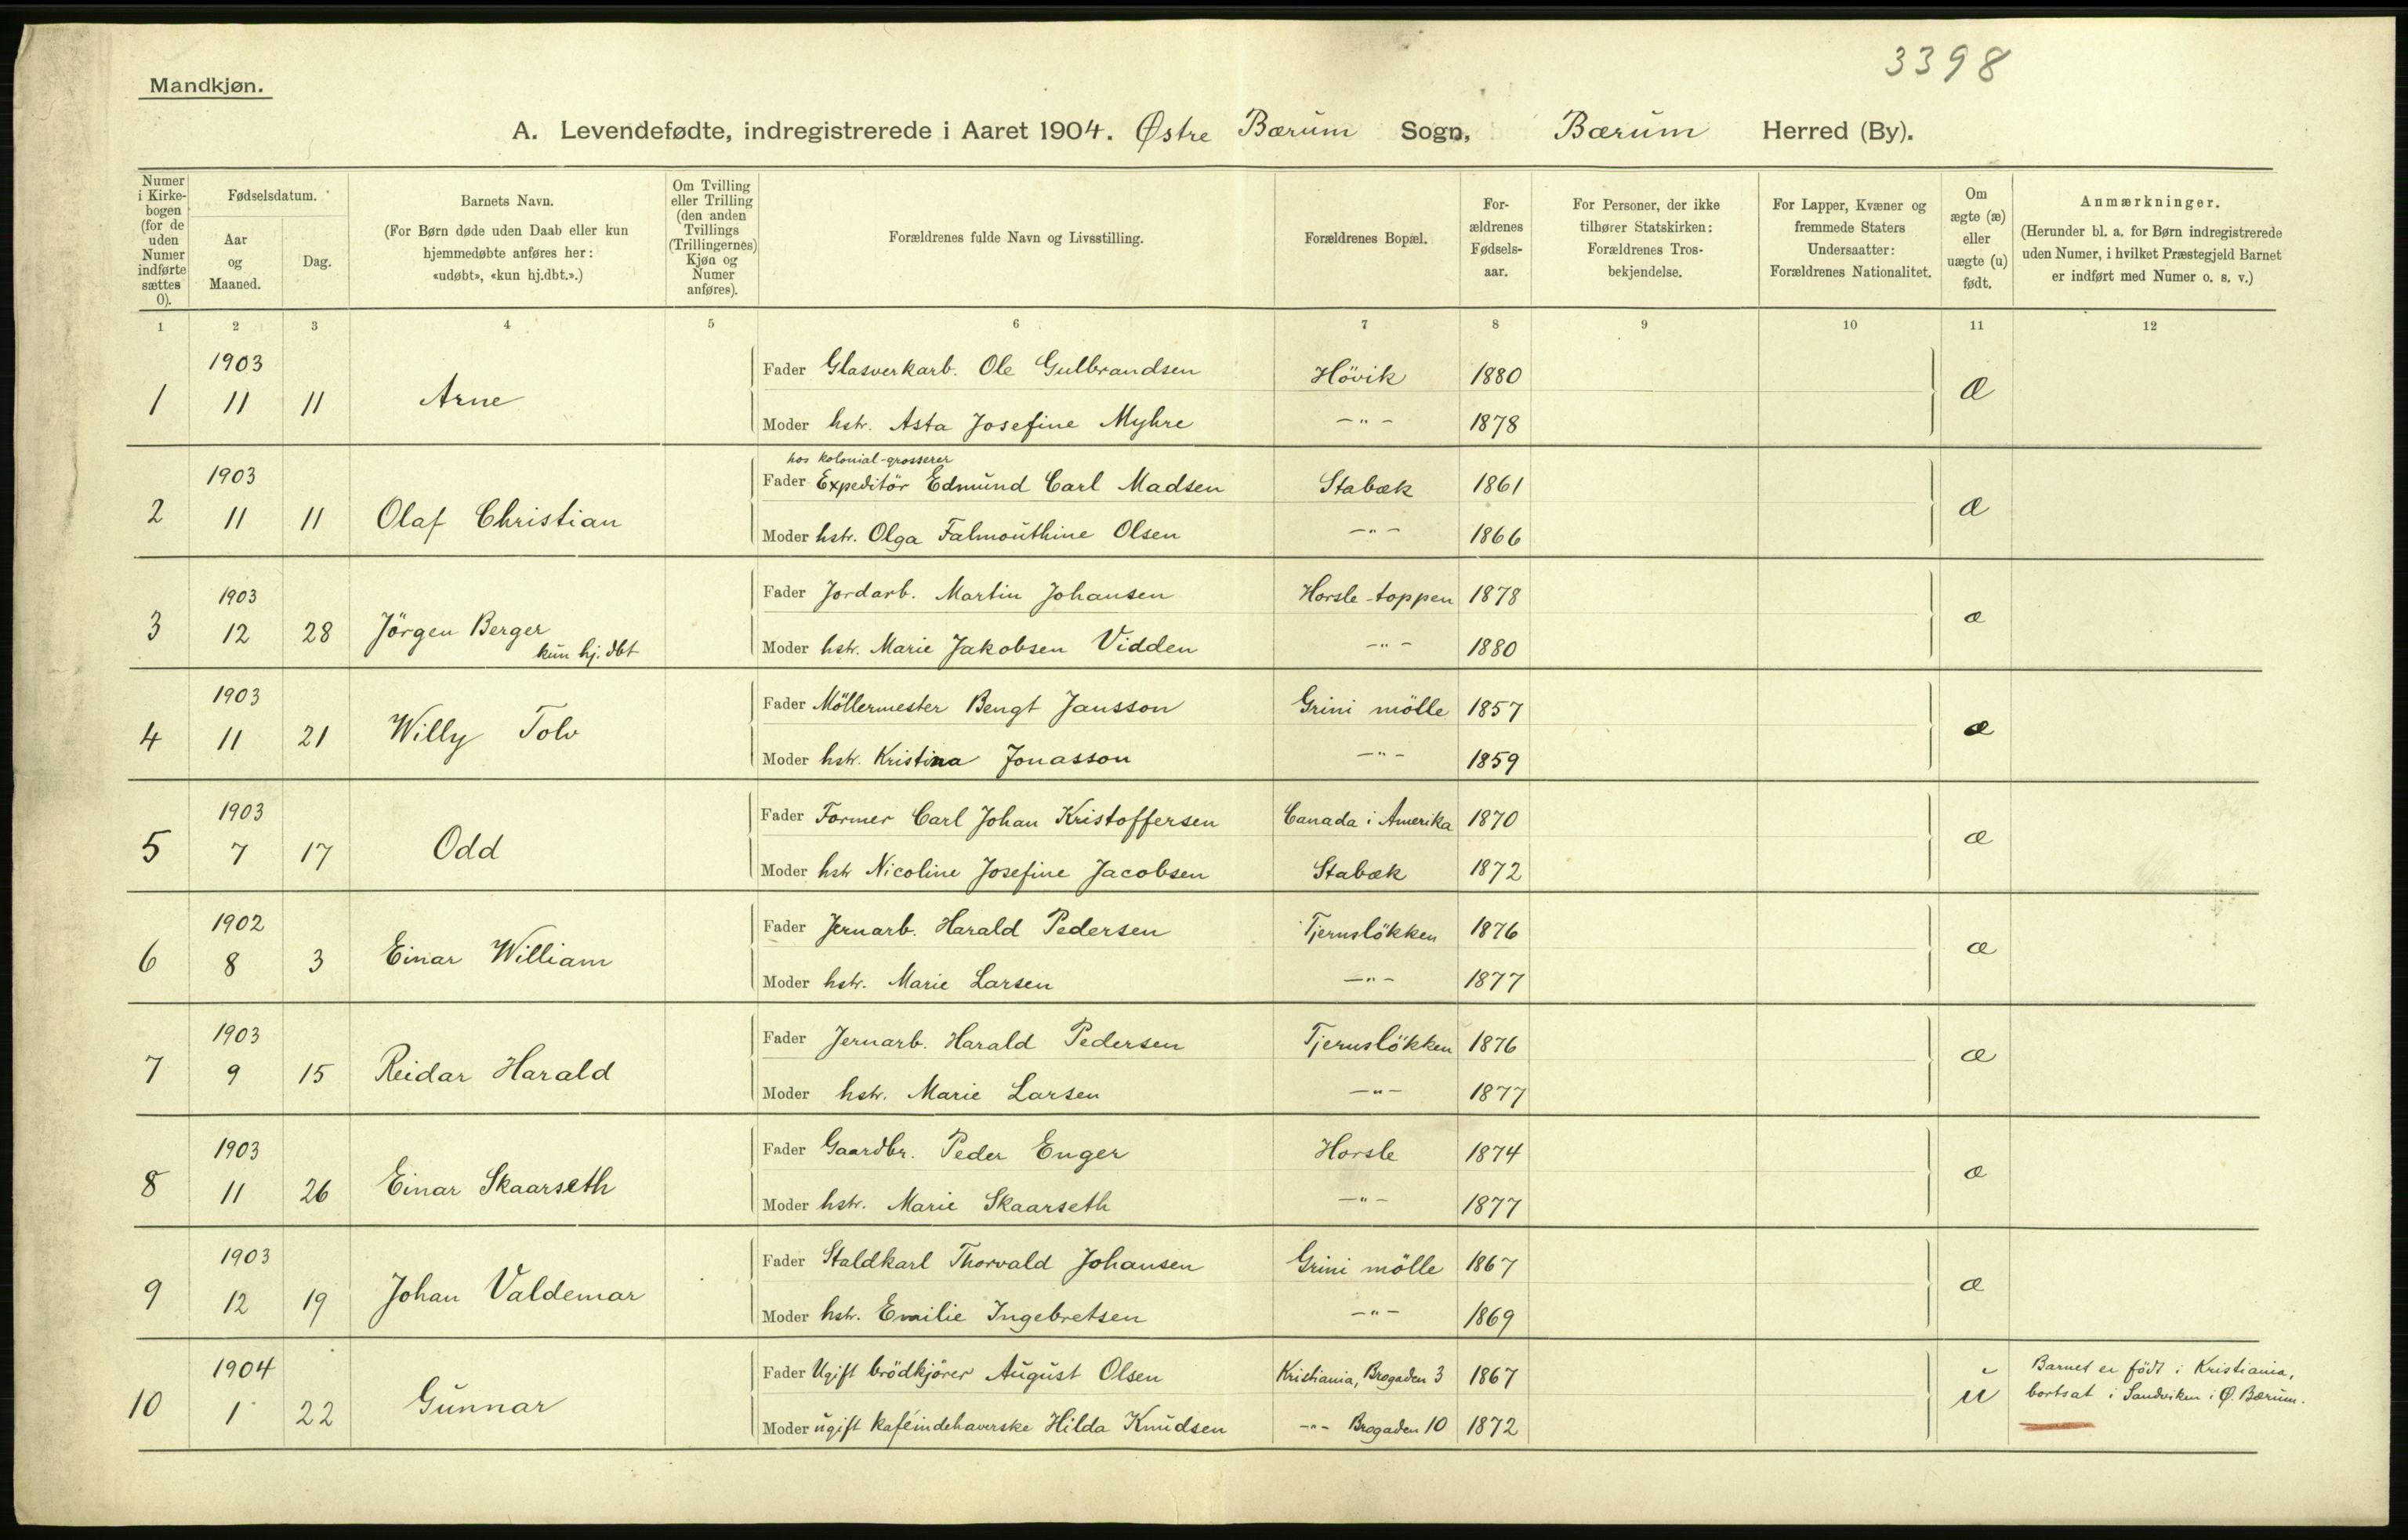 3398
Mandkjøn.
A. Levendefødte, indregistrerede i Aaret 1904. Østre Bærum Sogn, Bærum Herred (By).
Numer i Kirkebogen (for de uden Numer indførte sættes 0).
Fødselsdatum.
Aar og Maaned.
Dag.
Barnets Navn.
(For Børn døde uden Daab eller kun hjemmedøbte anføres her: «udøbt», «kun hj.dbt.».)
Om Tvilling eller Trilling (den anden Tvillings (Trillingernes) Kjøn og Numer anføres).
Forældrenes fulde Navn og Livsstilling.
Forældrenes Bopæl.
Forældrenes Fødselsaar.
For Personer, der ikke tilhører Statskirken: Forældrenes Trosbekjendelse.
For Lapper, Kvæner og fremmede Staters Undersaatter: Forældrenes Nationalitet.
Om ægte (æ) eller uægte (u) født.
Anmærkninger.
(Herunder bl. a. for Børn indregistrerede uden Numer, i hvilket Præstegjeld Barnet er indført med Numer o. s. v.)
1 2 3 4 5 6 7 8 9 10 11 12
1903
Fader Glasverkarb. Ole Gulbrandsen Hövik 1880
1 11 11 Arne æ
Moder hstr. Asta Josefine Myhre –"– 1878
hos kolonial-grosserer
1903
Fader Expeditör Edmund Carl Madsen Stabæk 1861
2 11 11 Olaf Christian æ
Moder hstr. Olga Falmouthine Olsen –"– 1866
1903
Fader Jordarb. Martin Johansen Horsle-toppen 1878
3 12 28 Jörgen Berger æ
kun hj. dbt
Moder hstr. Marie Jakobsen Vidden –"– 1880
1903
Fader Möllermester Bengt Jansson Grini mölle 1857
4 11 21 Willy Tolv æ
Moder hstr. Kristina Jonasson –"– 1859
1903
Fader Former Carl Johan Kristoffersen Canada i Amerika 1870
5 7 17 Odd æ
Moder hstr Nicoline Josefine Jacobsen Stabæk 1872
1902
Fader Jernarb. Harald Pedersen Tjernslökken 1876
6 8 3 Einar William æ
Moder hstr. Marie Larsen –"– 1877
1903
Fader Jernarb. Harald Pedersen Tjernslökken 1876
7 9 15 Reidar Harald æ
Moder hstr. Marie Larsen –"– 1877
1903
Fader Gaardbr. Peder Enger Horsle 1874
8 11 26 Einar Skaarseth æ
Moder hstr. Marie Skaarseth –"– 1877
1903
Fader Staldkarl Thorvald Johansen Grini mölle 1867
9 12 19 Johan Valdemar æ
Moder hstr. Emilie Ingebretsen –"– 1869
1904
Fader Ugift brödkjörer August Olsen Kristiania, Brogaden 3 1867 Barnet er födt i Kristiania,
10 1 22 Gunnar u bortsat i Sandviken i Ø. Bærum.
Moder ugift kaféindehaverske Hilda Knudsen –"– Brogaden 10 1872